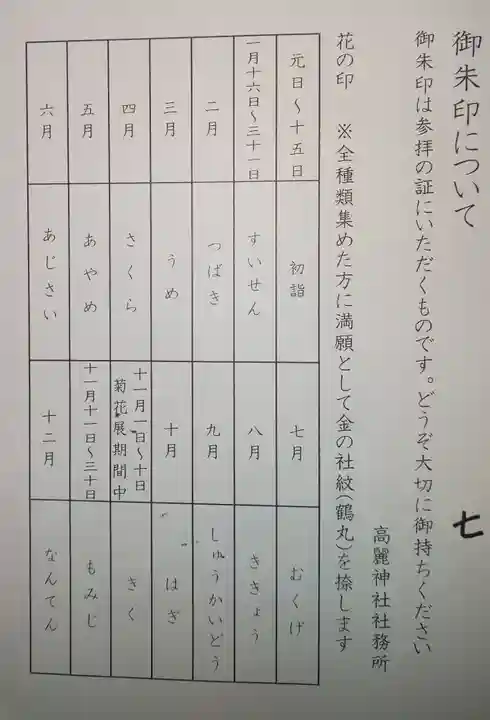 御朱印について
七
御朱印は参拝の証にいただくものです。どうぞ大切に御持ちください
高麗神社社務所
花の印 ※全種類集めた方に満願として金の社紋(鶴丸)を捺します
元日〜十五日 初詣 七月 むくげ
一月十六日〜三十一日 すいせん 八月 ききょう
二月 つばき 九月 しゅうかいどう
三月 うめ 十月 はぎ
四月 さくら 十一月一日〜十日 菊花展期間中 きく
五月 あやめ 十一月十一日〜三十日 もみじ
六月 あじさい 十二月 なんてん